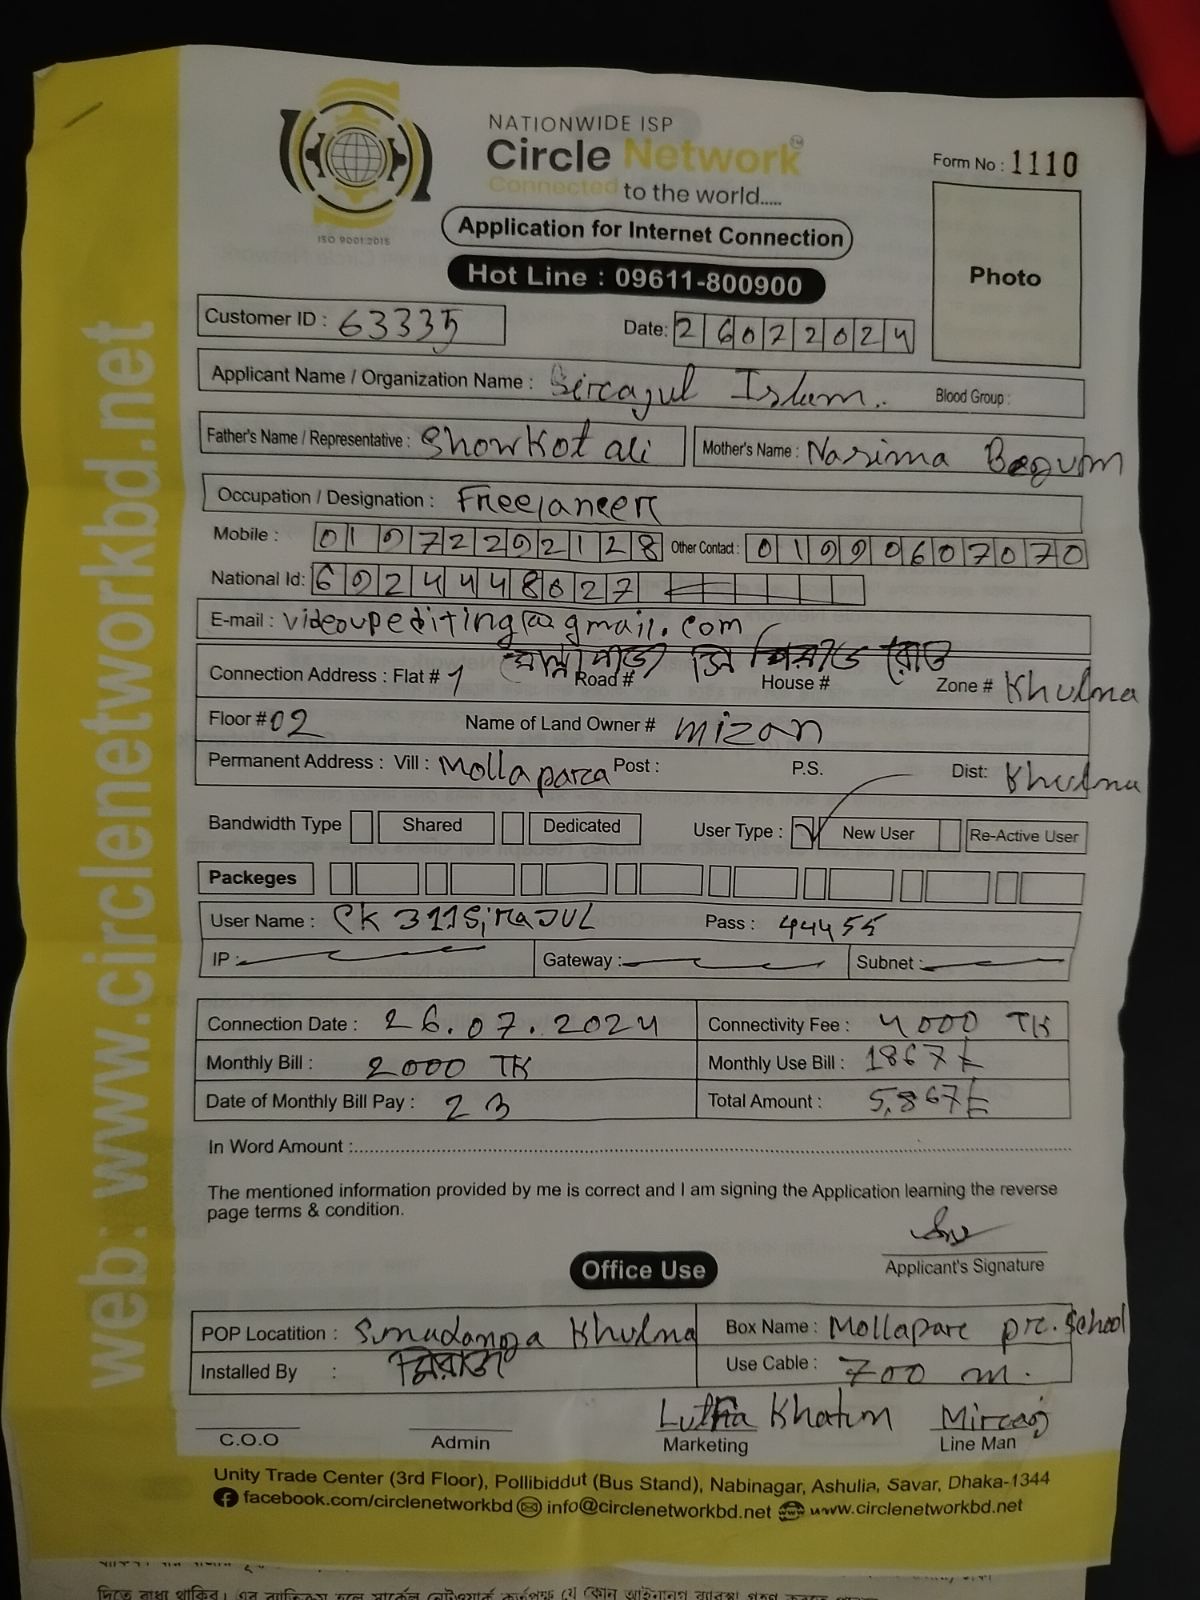 NATIONWIDE ISP
Circle Network™
Connected to the world.....
ISO 9001:2015
Form No : 1110
Application for Internet Connection
Photo
Hot Line : 09611-800900
Customer ID : 63335
Date: 26072024
Applicant Name / Organization Name : Sircajul Islam. Blood Group :
Father's Name / Representative : Showkot ali Mother's Name : Nasima Begum
Occupation / Designation : Freelancer
Mobile : 01972292128 Other Contact : 01990607070
National Id: 6924448627
E-mail : videoupediting@gmail.com
Connection Address : Flat # 1 Road # House # Zone # Khulna
Floor # 02 Name of Land Owner # mizan
Permanent Address : Vill : Mollaparca Post : P.S. Dist: Khulna
Bandwidth Type Shared Dedicated User Type : New User Re-Active User
Packeges
User Name : CK311SiraJUL Pass : 44455
IP : Gateway : Subnet :
Connection Date : 26.07.2024 Connectivity Fee : 4000 TK
Monthly Bill : 2000 TK Monthly Use Bill : 1867
Date of Monthly Bill Pay : 23 Total Amount : 5,867
In Word Amount :
The mentioned information provided by me is correct and I am signing the Application learning the reverse
page terms & condition.
Applicant's Signature
Office Use
POP Locatition : Sonadanga Khulna Box Name : Mollapare pre. School
Installed By : মিরাজ Use Cable : 700 m.
Lutfia Khatun Mircaj
C.O.O Admin Marketing Line Man
Unity Trade Center (3rd Floor), Pollibiddut (Bus Stand), Nabinagar, Ashulia, Savar, Dhaka-1344
facebook.com/circlenetworkbd info@circlenetworkbd.net www.circlenetworkbd.net
web: www.circlenetworkbd.net